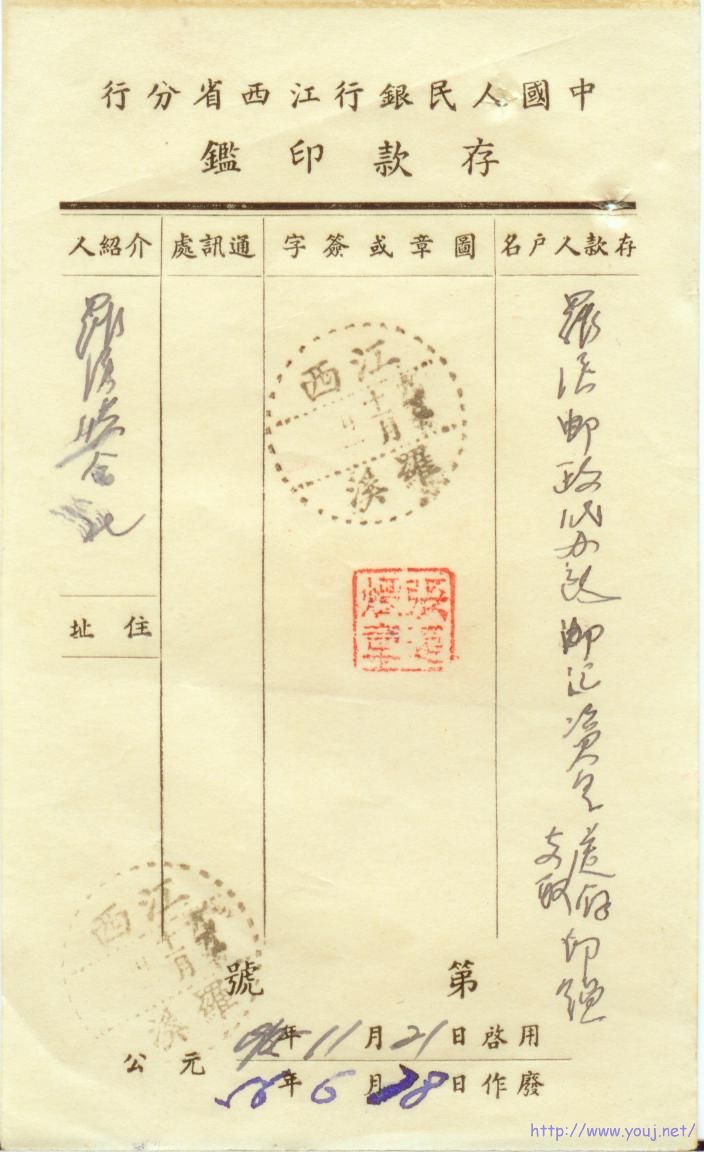 中國人民銀行江西省分行
存款印鑑
存款人戶名
圖章或簽字
通訊處
介紹人
羅溪郵政代办所郵汇資金送存
支取
印鑑
江西
羅溪
張運
煌章
羅溪
住址
江西
羅溪
第 號
公元 年11月21日啓用
56年6月28日作廢
http://www.youj.net/